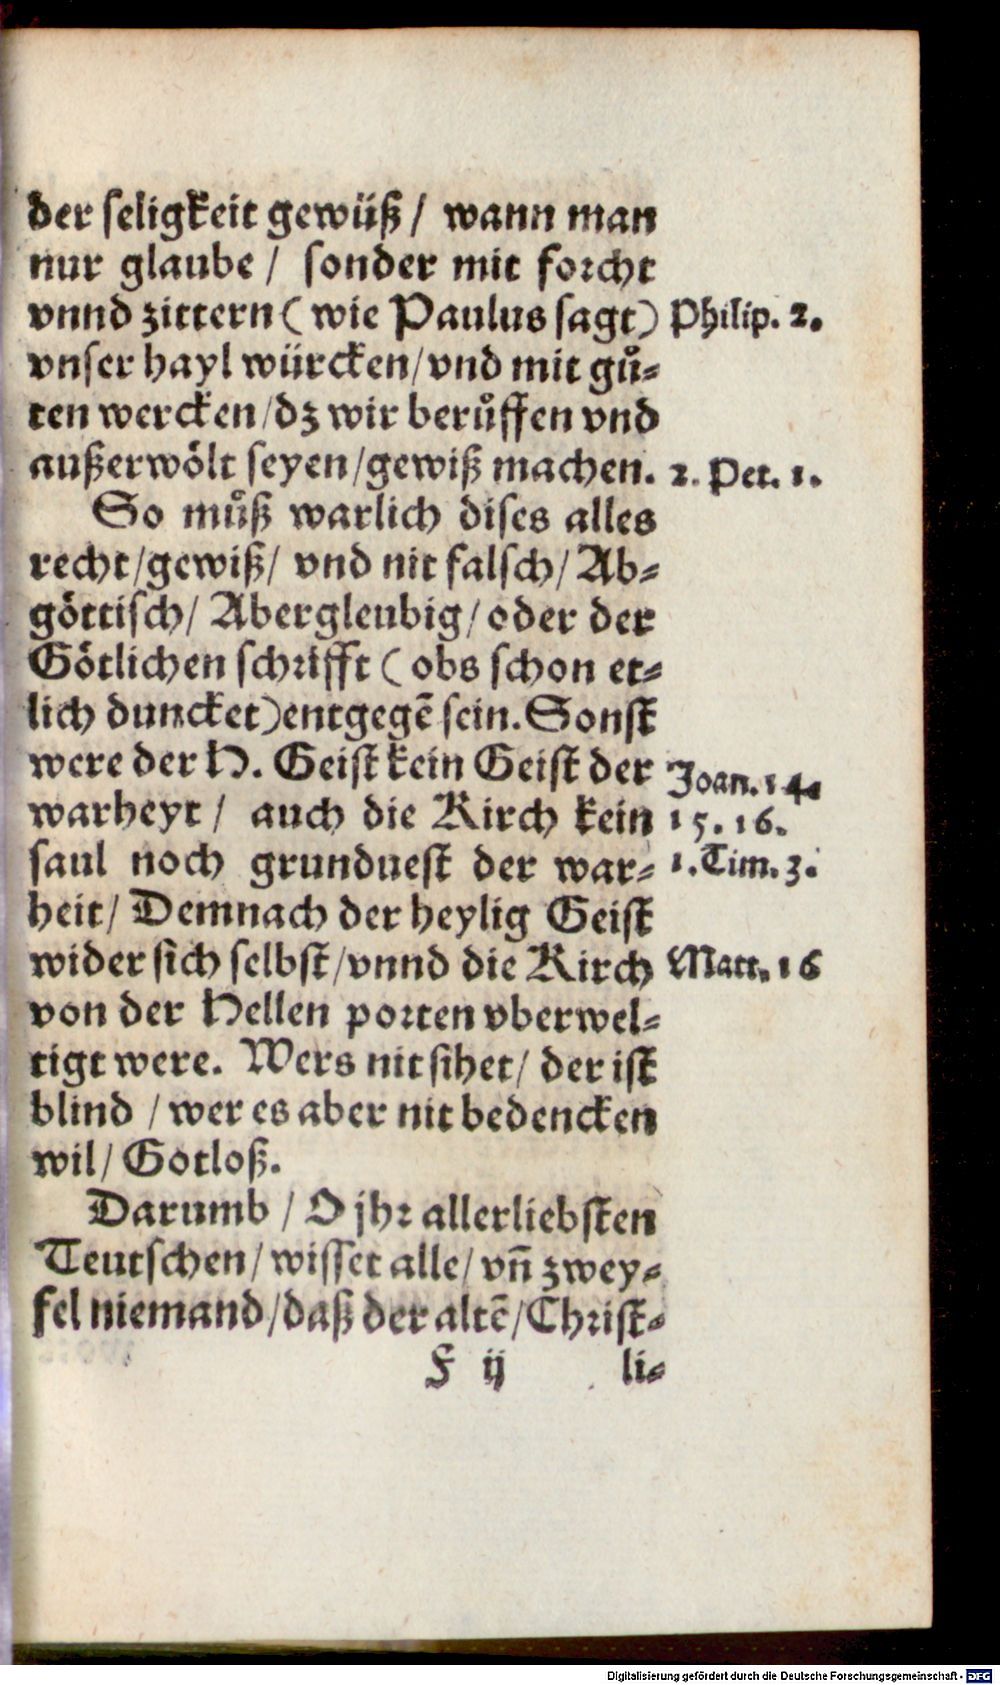 der seligkeit gewüß / wann man
nur glaube / sonder mit forcht
vnnd zittern ( wie Paulus sagt ) Philip. 2.
vnser hayl würcken / vnd mit gůͤ-
ten wercken / dz wir berůffen vnd
außerwölt seyen / gewiß machen. 2. Pet. 1.
So můß warlich dises alles
recht / gewiß / vnd nit falsch / Ab-
göttisch / Abergleubig / oder der
Götlichen schrifft ( obs schon et-
lich duncket ) entgegē sein. Sonst
were der H. Geist kein Geist der Joan. 14.
warheyt / auch die Kirch kein 15. 16.
saul noch grunduest der war- 1. Tim. 3.
heit / Demnach der heylig Geist
wider sich selbst / vnnd die Kirch Matt. 16
von der Hellen porten vberwel-
tigt were. Wers nit sihet / der ist
blind / wer es aber nit bedencken
wil / Gotloß.
Darumb / O jhr allerliebsten
Teutschen / wisset alle / vn̄ zwey-
fel niemand / daß der altē / Christ-
F ij li-
Digitalisierung gefördert durch die Deutsche Forschungsgemeinschaft - DFG